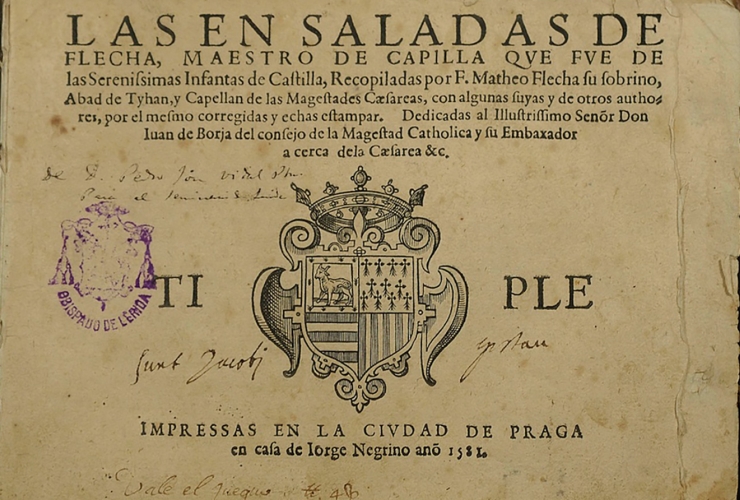 LAS ENSALADAS DE
FLECHA, MAESTRO DE CAPILLA QVE FVE DE
las Sereniſsimas Infantas de Caſtilla, Recopiladas por F. Matheo Flecha ſu ſobrino,
Abad de Tyhan, y Capellan de las Mageſtades Cæſareas, con algunas ſuyas y de otros autho-
res, por el meſmo corregidas y echas eſtampar. Dedicadas al Illuſtriſsimo Senõr Don
Iuan de Borja del conſejo de la Mageſtad Catholica y ſu Embaxador
a cerca dela Cæſarea &c.
de D. Pedro Jõn Vidal
Para el
OBISPADO DE LÉRIDA
TIPLE
Sunt Jacobj
IMPRESSAS EN LA CIVDAD DE PRAGA
en caſa de Iorge Negrino anõ 1581.
Vale el